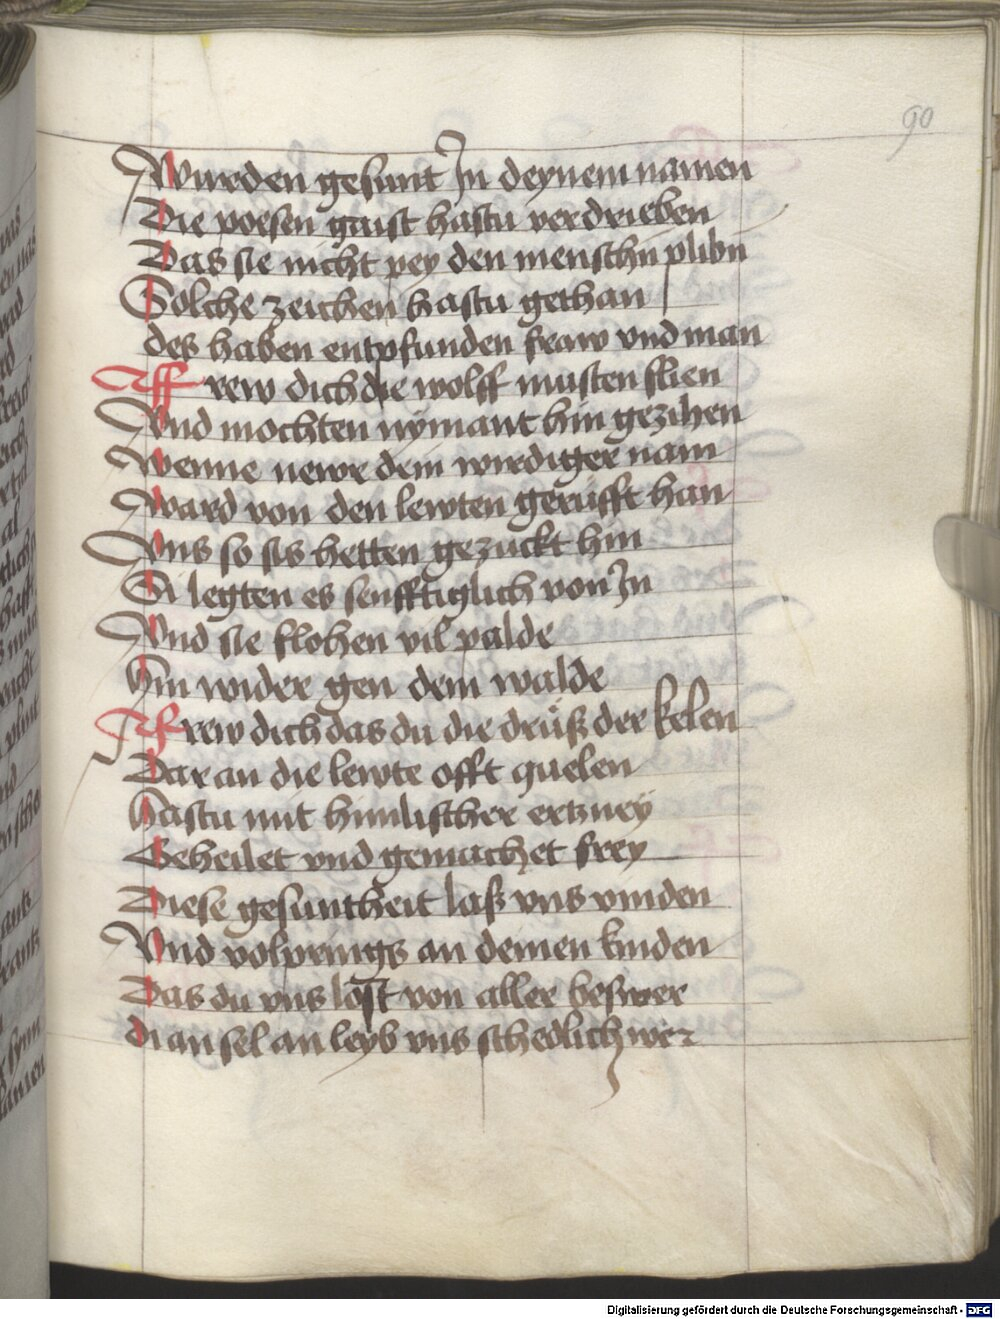 90
Wurden gesunt Jn deynem namen
Die poesen gaist hastu verdrieben
Das sie nicht pey den menschn plibn
Solche zeichen hastu gethan
des haben entpfunden fraw vnd man
Ffrew dich die wolff musten flien
Vnd mochten nymant hin gezihen
Wenne newr dein wirdiger nam
Ward von den lewten gerüfft han
Vns so sis hetten gezuckt hin
Si legten es senfftiglich von Jn
Vnd sie flohen vil palde
Hin wider gen dem walde
Ffrew dich das du die drüß der kelen
Dar an die lewte offt quelen
Hastu mit himlischer ertzney
Geheilet vnd gemachet frey
Diese gesuntheit laß vns vinden
Vnd volprings an deinen kinden
Das du vns lost von aller beswer
di an sel an leyb vns schedlich wer
Digitalisierung gefördert durch die Deutsche Forschungsgemeinschaft - DFG